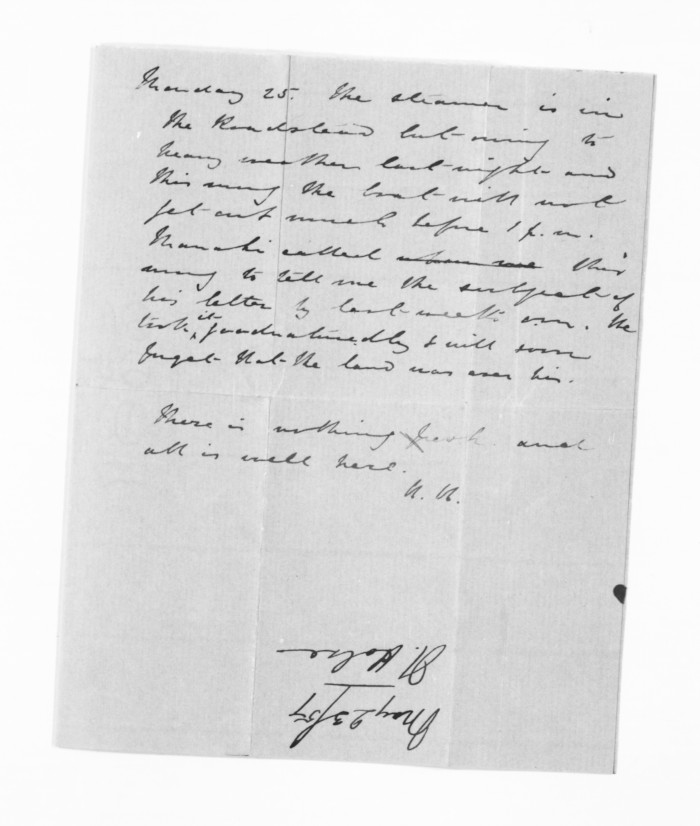 Monday 25. The steamer is in
the Roadstead but owing to
heavy weather last night and
this mng the boat will not
get out much before 1 p.m.
Manahi called this
mng to tell me the subject of
his letter by last week's own. He
took it goodnaturedly & will soon
forget that the land was ever his.
There is nothing fresh and
all is well here.
H. H.
H. Halse
May 23/57